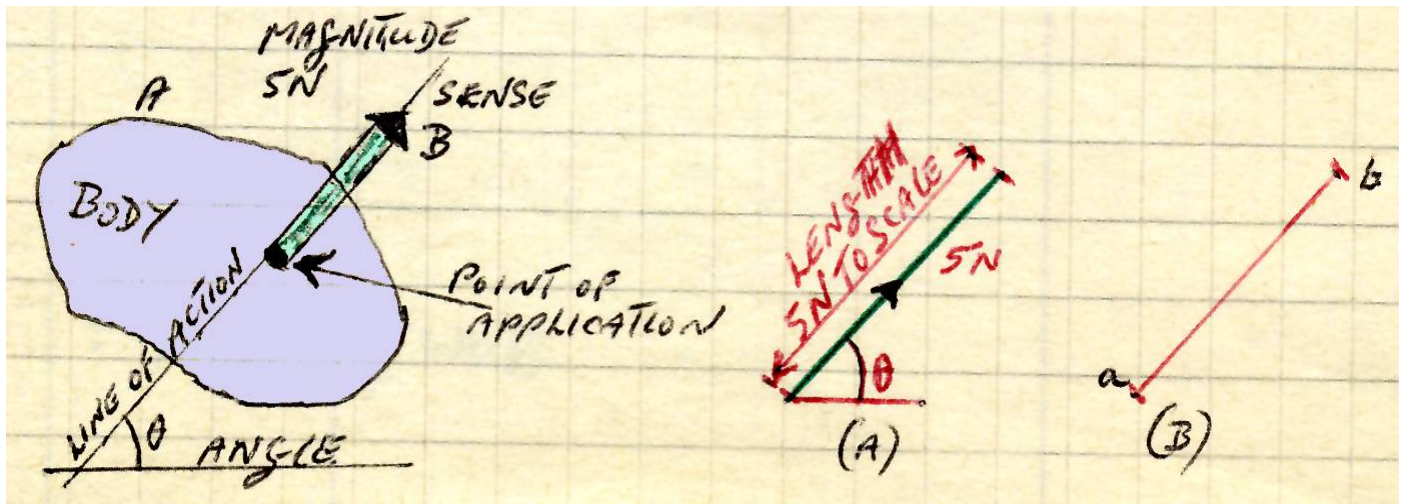 MAGNITUDE
5N
SENSE
A
B
BODY
POINT OF
APPLICATION
LINE OF ACTION
θ
ANGLE
LENGTH
5N TO SCALE
5N
θ
(A)
a
b
(B)